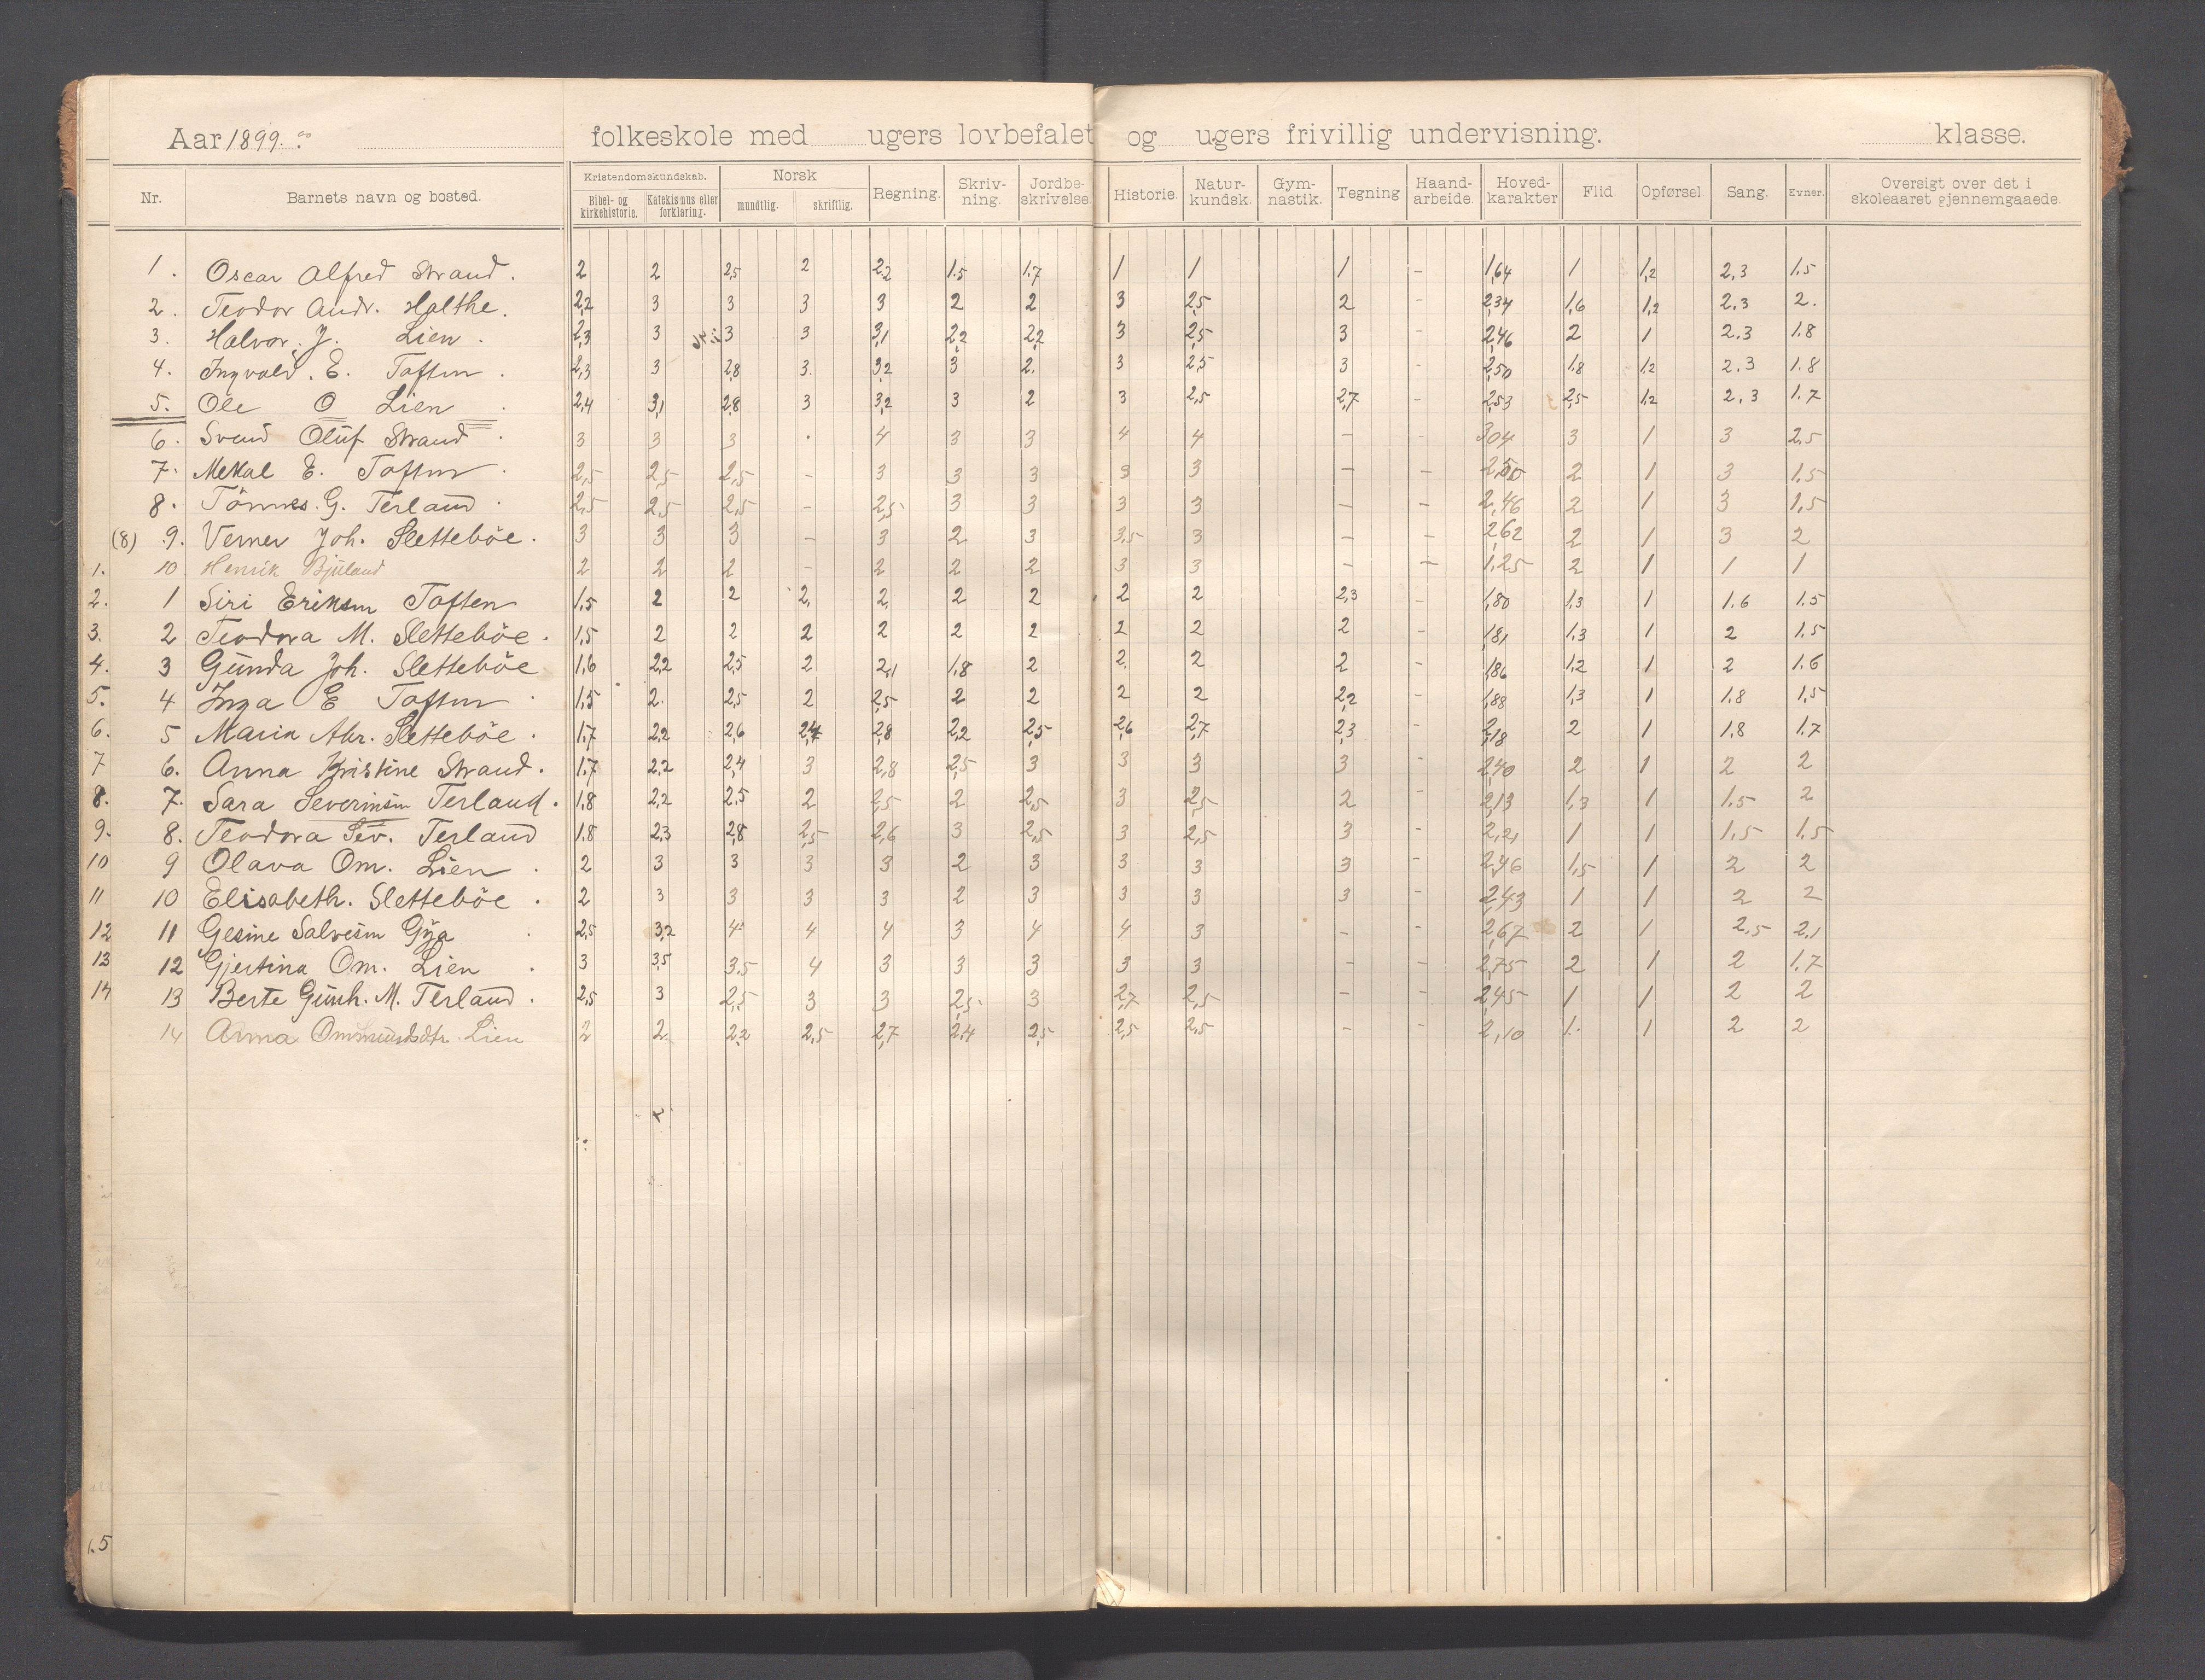 Aar 1899. folkeskole med ugers lovbefalet og ugers frivillig undervisning. klasse.
Nr. Barnets navn og bosted. Kristendomskundskab. Bibel- og kirkehistorie. Katekismus eller forklaring. Norsk mundtlig. skriftlig. Regning. Skriv-ning. Jordbe-skrivelse. Historie. Natur-kundsk. Gym-nastik. Tegning Haand-arbeide. Hoved-karakter Flid. Opførsel. Sang. Evner. Oversigt over det i skoleaaret gjennemgaaede.
1. Oscar Alfred Strand. 2 2 2,5 2 2,2 1.5 1.7 1 1 1 - 1,64 1 1,2 2,3 1.5
2. Teodor Andr. Halthe. 2,2 3 3 3 3 2 2 3 2,5 2 - 2,34 1,6 1,2 2.3 2.
3. Halvor J. Lien. 2,3 3 3 3 3,1 2,2 2,2 3 2,5 3 - 2,46 2 1 2.3 1.8
4. Ingvald. E. Toften. 2,3 3 2,8 3. 3,2 3 2. 3 2,5 3 - 2,50 1,8 1,2 2.3 1.8
5. Ole O Lien. 2,4 3,1 2,8 3 3,2 3 2 3 2,5 2,7 - 2,53 2,5 1,2 2,3 1.7
6. Svend Oluf Strand. 3 3 3 . 4 3 3 4 4 - - 3,04 3 1 3 2,5
7. Mekal E. Toften. 2,5 2,5 2,5 - 3 3 3 3 3 - - 2 1 3 1.5
8. Tönnes. G. Terland. 2,5 2,5 2,5 - 2,5 3 3 3 3 - - 2,46 2 1 3 1,5
(8) 9. Verner Joh. Sletteböe. 3 3 3 - 3 2 3 3,5 3 - - 2,62 2 1 3 2
1. 10 Henrik Bjuland 2 2 2 - 2 2 2 3 3 - - 1,25 2 1 1 1
2. 1 Siri Eriksen Toften 1,5 2 2 2, 2, 2 2 2 2 2,3 - 1,80 1,3 1 1.6 1.5
3. 2 Teodora M. Sletteböe. 1,5 2 2 2 2 2 2 2 2 2 - 1,81 1,3 1 2 1.5
4. 3 Gunda Joh. Sletteböe 1,6 2,2 2,5 2 2,1 1,8 2 2 2 2 - 1,86 1,2 1 2 1.6
5. 4 Inga E Toften 1,5 2. 2,5 2 2,5 2 2 2 2 2,2 - 1,88 1,3 1 1.8 1,5
6. 5 Marin Abr. Sletteböe. 1,7 2,2 2,6 2,4 2,8 2,2 2,5 2,6 2,7 2,3 - 2,18 2 1 1.8 1.7
7 6. Anna Kristine Strand. 1,7 2,2 2,4 3 2,8 2,5 3 3 3 3 - 2,40 2 1 2 2
8. 7. Sara Severinsen Terland. 1,8 2,2 2,5 2 2,5 2 2,5 3 2,5 2 - 2,13 1,3 1 1.5 2
9. 8. Teodora Sev. Terland 1.8 2,3 2,8 2,5 2,6 3 2,5 3 2,5 3 - 2,21 1 1 1.5 1.5
10 9 Olava Om. Lien. 2 3 3 3 3 2 3 3 3 3 - 2,46 1,5 1 2 2
11 10 Elisabeth. Sletteböe. 2 3 3 3 3 2 3 3 3 3 - 2,43 1 1 2 2
12 11 Gesine Salvesen Gya. 2,5 3,2 4 4 4 3 4 4 3 - - 2,67 2 1 2,5 2,1
13 12 Gjertina Om. Lien. 3 3,5 3,5 4 3 3 3 3 3 - - 2,75 2 1 2 1.7
14 13 Berte Gunh. M. Terland. 2,5 3 2,5 3 3 2,5 3 2,7 2,5 - - 2,45 1 1 2 2
14 Anna Ommundsdtr. Lien 2 2 2,2 2,5 2,7 2,4 2,5 2,5 2,5 - - 2,10 1. 1 2 2